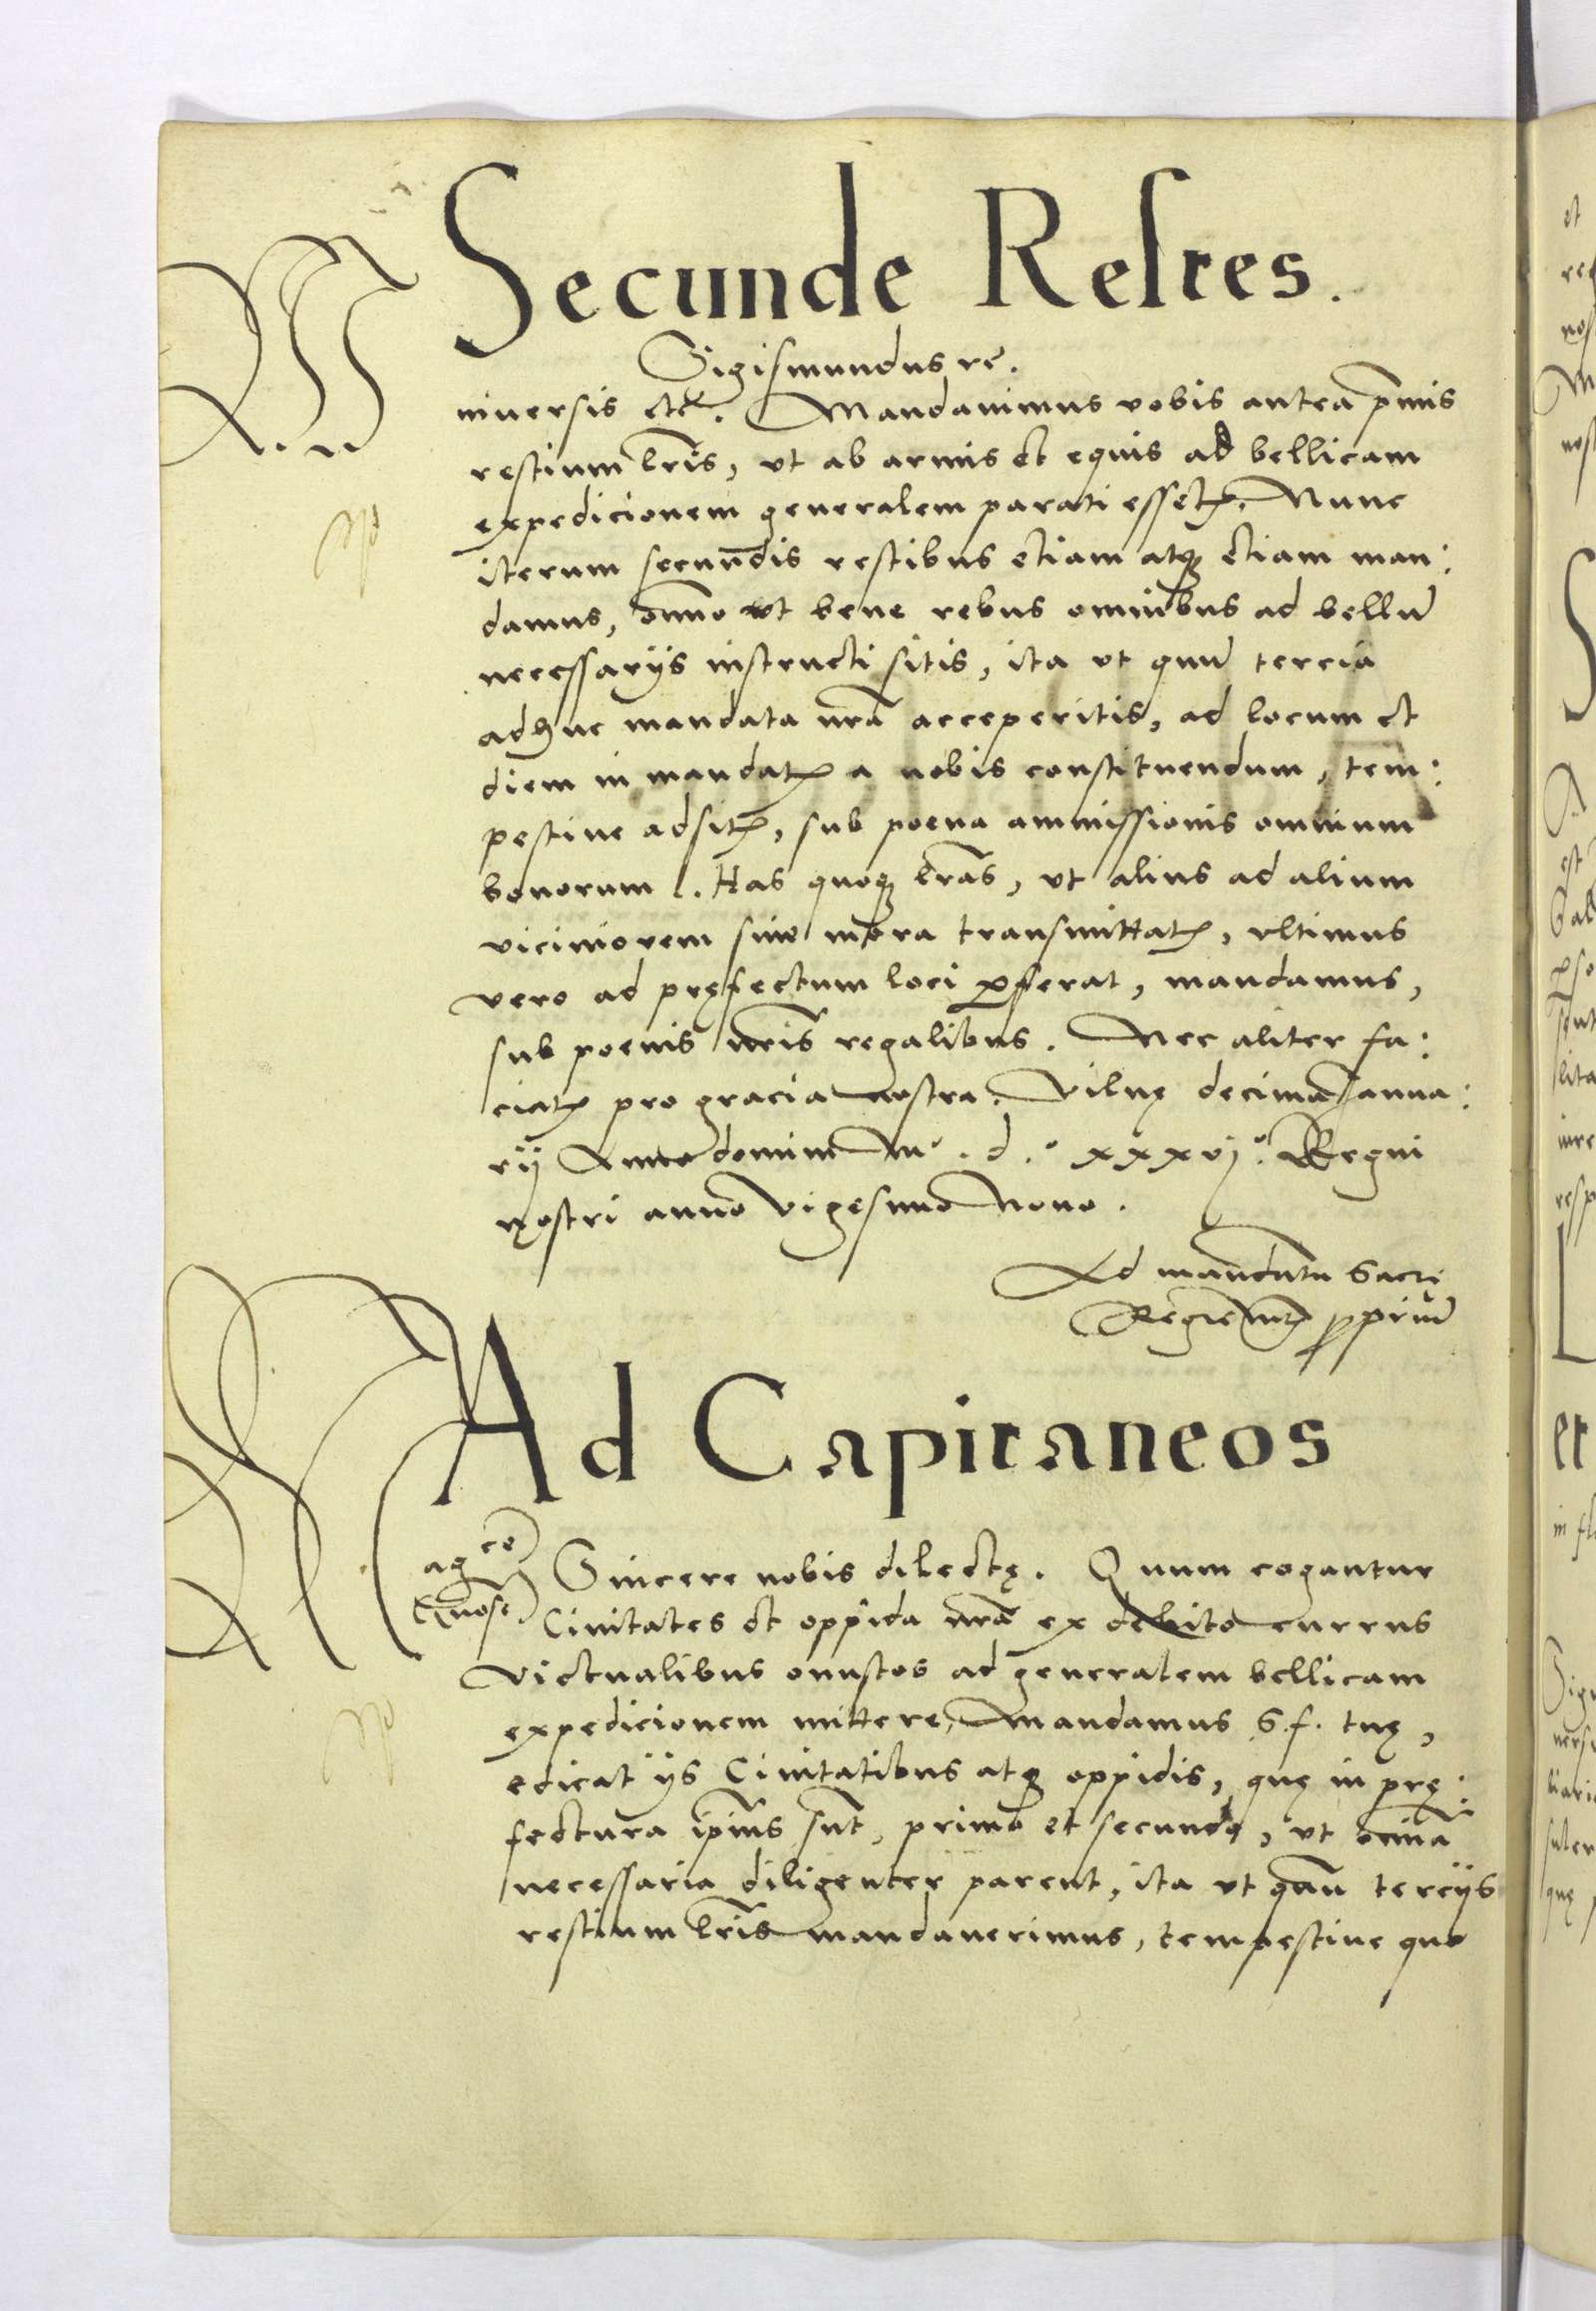 Secunde Restes.
Sigismundus rē.
Universis etc. Mandauimus vobis antea p̄mis
restium lr̄is, vt ab armis et equis ad bellicam
expedicionem generalem parati essetꝭ. Nunc
iterum secundis restibus etiam atqꝫ etiam man:
damus, om̄no vt bene rebus omnibus ad bellū
necessarÿs instructi sitis, ita vt quū tercia
adhuc mandata nr̄a acceperitis, ad locum et
diem in mandatꝭ a nobis constituendum, tem:
pestiue adsitꝭ, sub poena ammissionis omnium
bonorum. Has quoqꝫ lr̄as, vt alius ad alium
viciniorem sine mora transmittatꝭ, vltimus
vero ad pręfectum loci ꝑferat, mandamus,
sub poenis nr̄is regalibus. Nec aliter fa:
ciatꝭ pro gracia nostra. Vilnę decima Janua:
rÿ Anno domini Mº. dº. xxxvjº. Regni
nostri anno vigesimo Nono.
Ad mandatū Sacrę
Regie mtꝭ ꝓpriū
Ad Capitaneos
Magce Sincere nobis dilectę. Quum cogantur
Gnose Ciuitates et oppida nr̄a ex debito currus
victualibus onustos ad generalem bellicam
expedicionem mittere, Mandamus S.f. tuę,
edicat ÿs Ciuitatibus atqꝫ oppidis, quę in prę:
fectura ip̄ius sūt, primo et secundo, vt om̄ia
necessaria diligenter parent, ita vt quū tercÿs
restium lr̄is mandauerimus, tempestiue quo